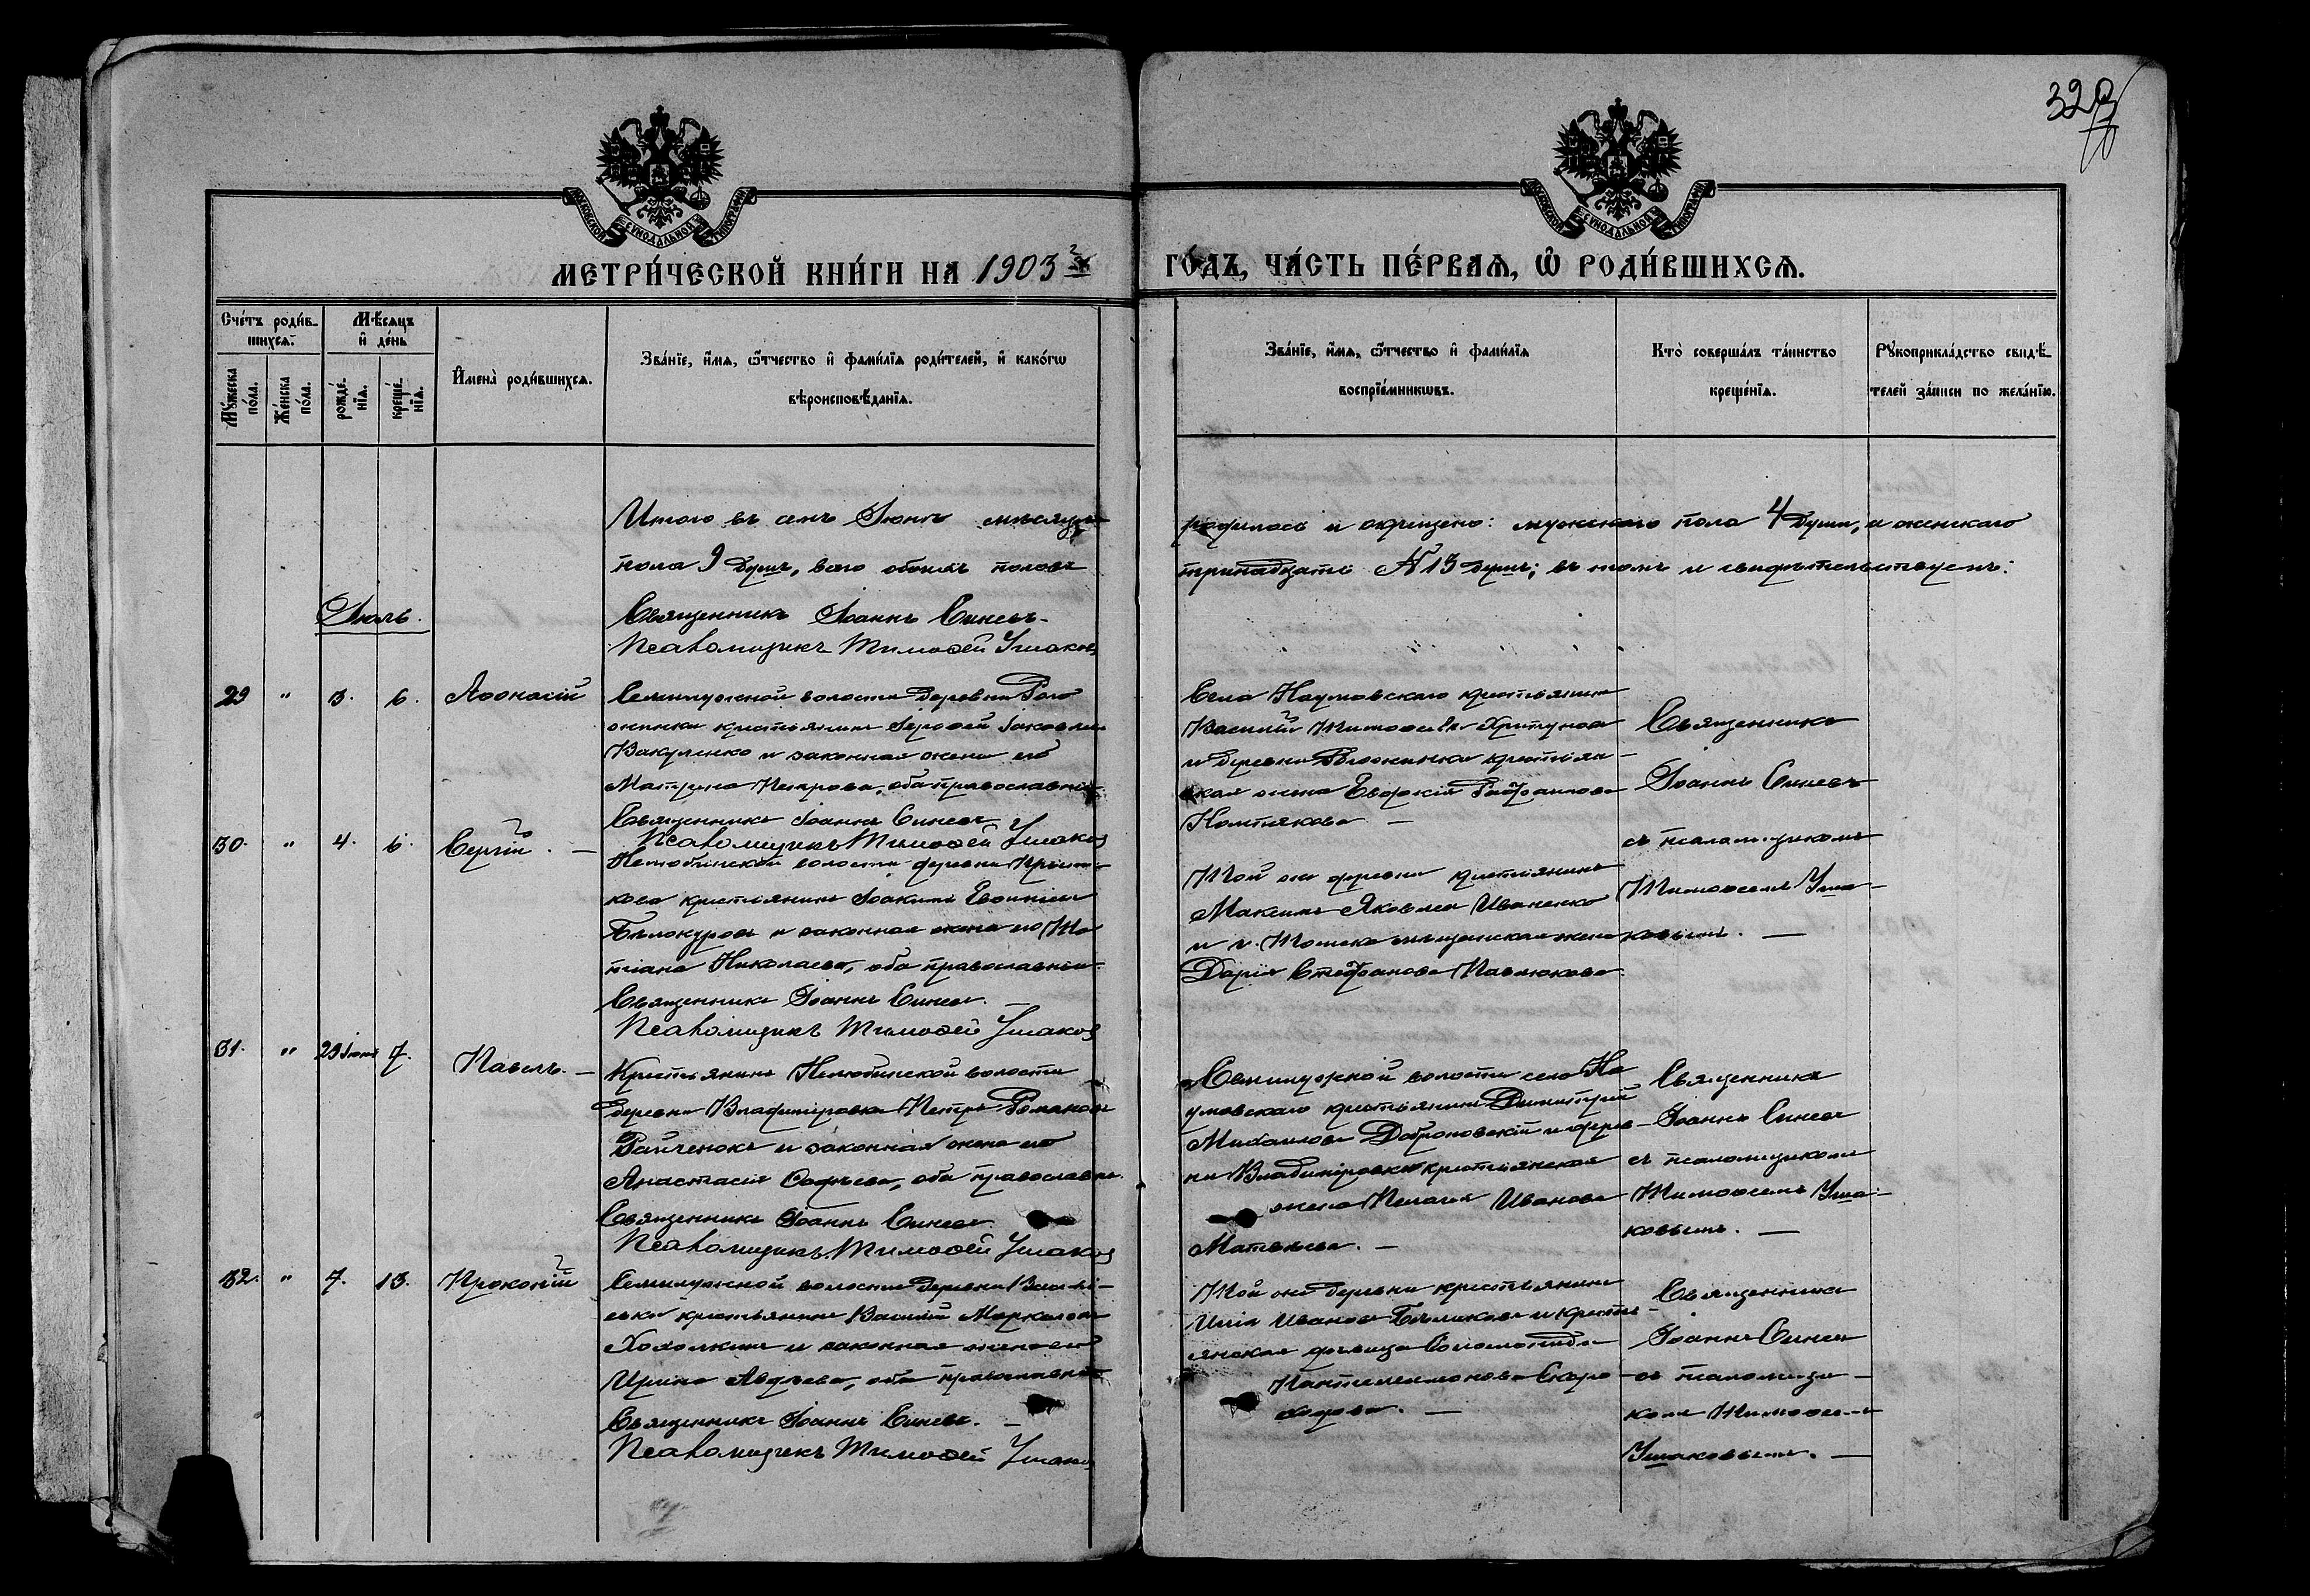 323
МОСКОВСКОЙ СѴНОДАЛЬНОЙ ТИПОГРАФІИ
МОСКОВСКОЙ СѴНОДАЛЬНОЙ ТИПОГРАФІИ
МЕТРИ́ЧЕСКОЙ КНИ́ГИ НА 1903 й
ГО́ДЪ, ЧА́СТЬ ПЕ́РВАѦ, Ѿ РОДИ́ВШИХСѦ.
Сче́тъ роди́в-
шихсѧ.
Мѣ́сѧцъ
и҆ де́нь
Мꙋ́жеска
по́ла.
Же́нска
по́ла.
рожде́-
нїѧ.
креще́-
нїѧ.
И҆мена̀ роди́вшихсѧ.
Зва́нїе, и҆́мѧ, ѻ҆́тчество и҆ фами́лїѧ роди́телей, и҆ како́гѡ
вѣроисповѣ́данїѧ.
Зва́нїе, и҆́мѧ, ѻ҆́тчество и҆ фами́лїѧ
воспрїе́мникѡвъ.
Кто̀ соверша́лъ та́инство
креще́нїѧ.
Рꙋкоприкла́дство свидѣ́-
телей за́писи по жела́нїю.
Итого въ семъ Іюнѣ мѣсяцѣ
родилось и окрещено: мужескаго пола 4 души, и женскаго
пола 9 душъ, всего обоихъ половъ
тринадцать 13 душъ; въ томъ и свидѣтельствуемъ:
Іюль.
Священникъ Іоаннъ Синевъ
Псаломщикъ Тимофей Ушаковъ
29 " 3. 6. Аѳонасій
Семилужной волости деревни Рого
жинки крестьянинъ Іаковлевъ
Вакуленко и законная жена его
Матрона Петрова, оба православные
Священникъ Іоаннъ Синевъ
Псаломщикъ Тимофей Ушаковъ
Села Наумовскаго крестьянинъ
Василій Тимофеевъ
и деревни крестьян-
ская жена Евдокія
Священникъ
Іоаннъ Синевъ
съ псаломщикомъ
Тимофеемъ Уша-
ковымъ. —
30. " 4. 6. Сергій. —
Нелюбинской волости деревни
кова крестьянинъ Іоакимъ
Бѣлокуровъ и законная жена его Та
тіана Николаева, оба православные.
Священникъ Іоаннъ Синевъ. —
Псаломщикъ Тимофей Ушаковъ
Той же деревни крестьянинъ
Максимъ Яковлевъ Иваненко
и г. Томска мѣщанская жена
Дарія Стефанова Павлюкова.
31. " 29 Іюня 7. Павелъ. —
Крестьянинъ Нелюбинской волости
деревни Владимировки Петръ Романовъ
и законная жена его
Анастасія, оба православные.
Священникъ Іоаннъ Синевъ
Псаломщикъ Тимофей Ушаковъ
Семилужной волости села На
умовскаго крестьянинъ Димитрій
Михаиловъ Доброновскій и дерев-
ни Владимировки крестьянская
жена Пелагія Иванова
Матвѣева. —
Священникъ
Іоаннъ Синевъ
съ псаломщикомъ
Тимофеемъ Уша-
ковымъ. —
32. " 7. 13. Прокопій
Семилужной волости деревни
крестьянинъ Василій
и законная жена его
Ирина Авдѣева, оба православные
Священникъ Іоаннъ Синевъ. —
Псаломщикъ Тимофей Ушаковъ
Той же деревни крестьянинъ
Илія Ивановъ и кресть-
янская дѣвица Соломонида
Пантелеимонова Скоро
ходова. —
Священникъ
Іоаннъ Синевъ
съ псаломщи-
комъ Тимофеемъ
Ушаковымъ. —